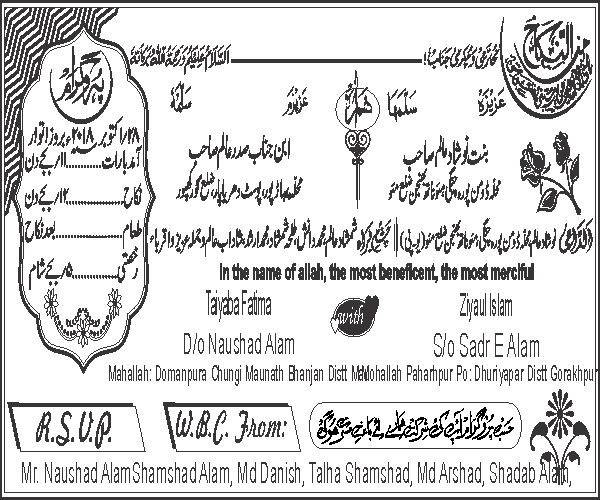 پروگرام
۲۸/اکتوبر ۲۰۱۸ء بروز اتوار
آمد بارات............۱۱/بجے دن
نکاح............۱۲/بجے دن
طعام............بعد نکاح
رخصتی............۵/بجے شام
السلام علیکم ورحمۃ اللہ وبرکاتہ
محترمی و مکرمی جناب!
عزیزم
سلمہٗ
ہمراہ
سلمہا
عزیزہ
ابن جناب صدر عالم صاحب
محلہ پہاڑپور، پوسٹ دھریاپار، ضلع گورکھپور
بنت نوشاد عالم صاحب
محلہ ڈومن پورہ چنگی، مئوناتھ بھنجن ضلع مئو
In the name of allah, the most beneficent, the most merciful
Taiyaba Fatima
with
Ziyaul Islam
D/o Naushad Alam
S/o Sadr E Alam
Mahallah: Domanpura Chungi Maunath Bhanjan Distt Mau
Mohallah Paharhpur Po: Dhuriyapar Distt Gorakhpur
R.S.V.P.
W.B.C. From:
Mr. Naushad Alam Shamshad Alam, Md Danish, Talha Shamshad, Md Arshad, Shadab Alam,